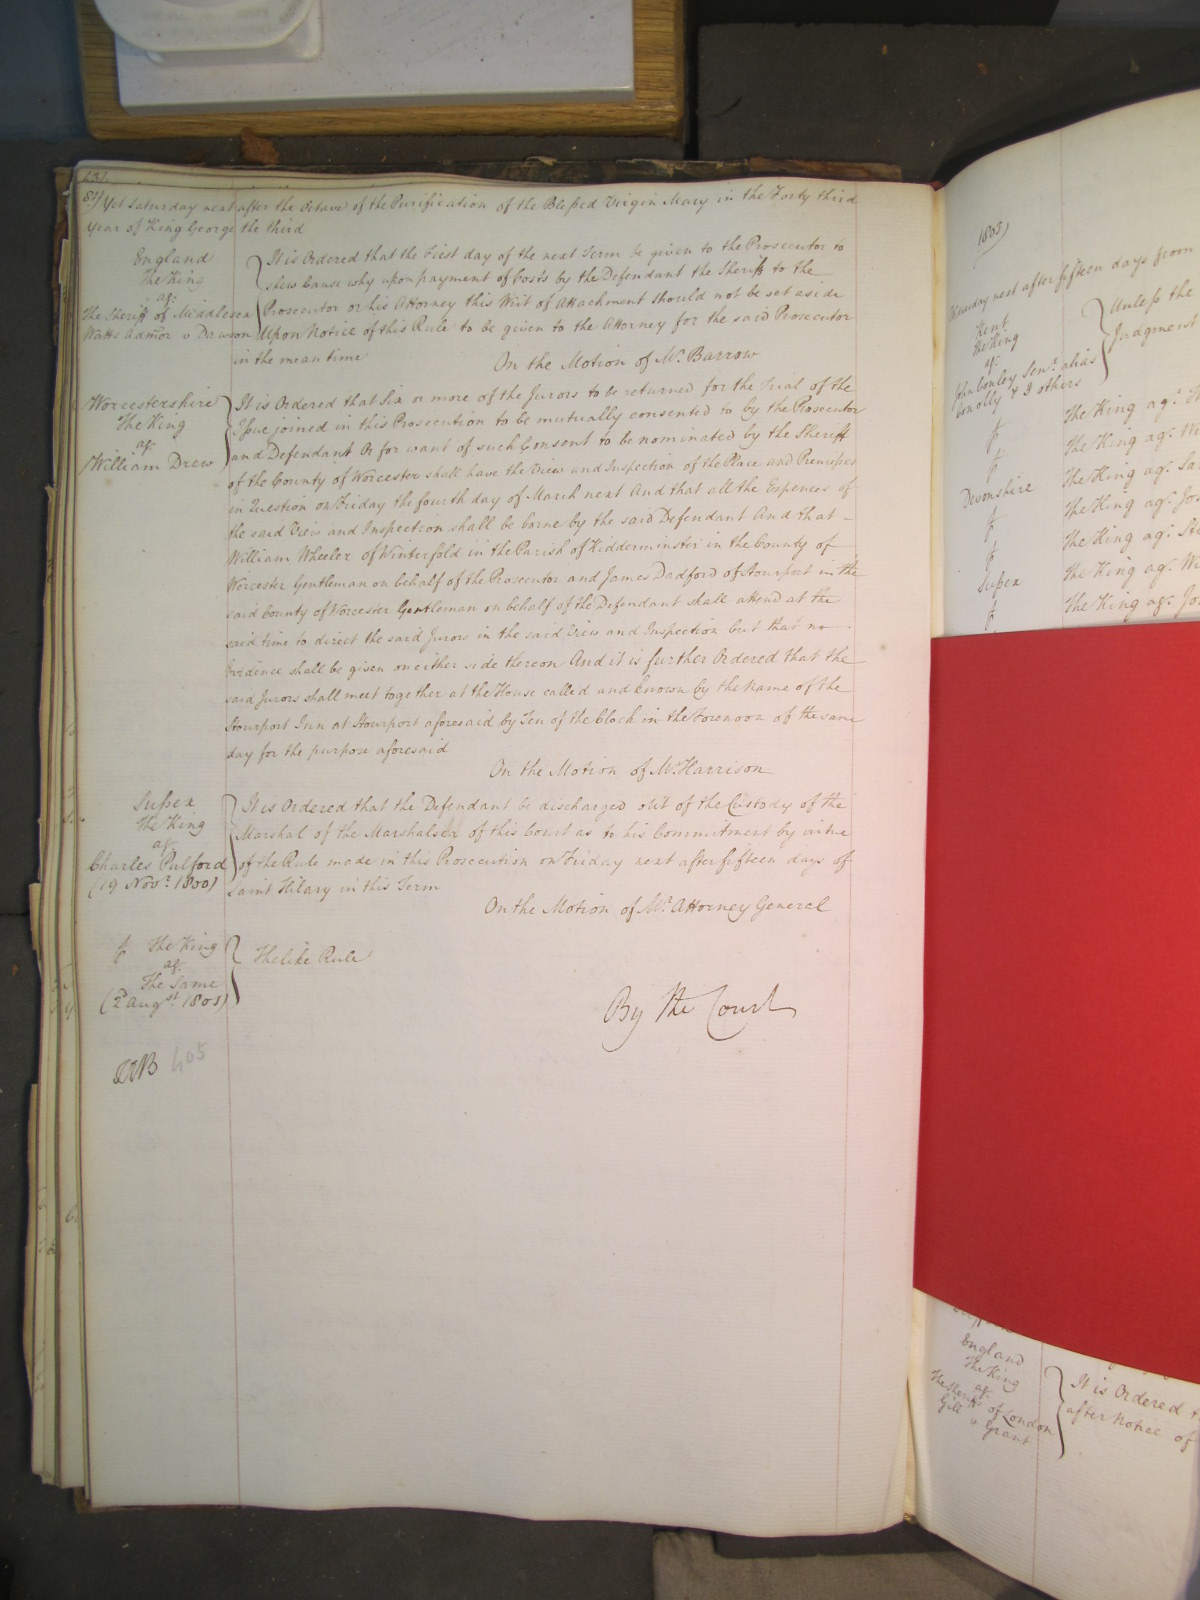 231.
81) Yet Saturday next after the Octave of the Purification of the Blessed Virgin Mary in the Forty third
Year of King George the third
England
The King
agt.
The Sheriff of Middlesex
Watts Admor v Dawson
It is Ordered that the First day of the next Term be given to the Prosecutor to
shew Cause why upon payment of Costs by the Defendant the Sheriff to the
Prosecutor or his Attorney this Writ of Attachment should not be set aside
Upon Notice of this Rule to be given to the Attorney for the said Prosecutor
in the mean time
On the Motion of Mr. Barrow
Worcestershire
The King
agt.
William Drew
It is Ordered that Six or more of the Jurors to be returned for the Trial of the
Issue joined in this Prosecution to be mutually consented to by the Prosecutor
and Defendant Or for want of such Consent to be nominated by the Sheriff
of the County of Worcester shall have the View and Inspection of the Place and Premises
in Question on Friday the fourth day of March next And that all the Expences of
the said View and Inspection shall be borne by the said Defendant And that
William Wheeler of Winterfold in the Parish of Kidderminster in the County of
Worcester Gentleman on behalf of the Prosecutor and James Dadford of Stourport in the
said County of Worcester Gentleman on behalf of the Defendant shall attend at the
said time to direct the said Jurors in the said View and Inspection but that no
Evidence shall be given on either side thereon And it is further Ordered that the
said Jurors shall meet together at the House called and known by the Name of the
Stourport Inn at Stourport aforesaid by Ten of the Clock in the Forenoon of the same
day for the purpose aforesaid
On the Motion of Mr. Harrison
Sussex
The King
agt.
Charles Pulford
(19 Novr. 1800)
It is Ordered that the Defendant be discharged out of the Custody of the
Marshal of the Marshalsea of this Court as to his Commitment by virtue
of the Rule made in this Prosecution on Friday next after fifteen days of
Saint Hilary in this Term
On the Motion of Mr. Attorney General
The King
agt.
The Same
The like Rule
By the Court
405
1803)
next after fifteen days from
Kent
The King
agt.
John Conley Senr. alias
Conolly & 3 others
Unless the
Judgment
The King agt.
The King agt.
Devonshire
The King agt.
The King agt.
The King agt.
Sussex
The King agt.
The King agt.
England
The King
agt.
The Sheriff of London
Gill v Grant
It is Ordered
after Notice of